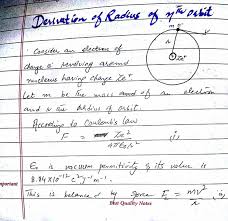 Derivation of Radius of nth orbit
m e⁻
Consider an electron of
charge e⁻ revolving around
r
Ze⁺
nucleus having charge Ze⁺
Let m be the mass and of an electron
and r the Radius of orbit.
According to Coulomb's law
F = Ze² / 4πε₀r² i,
Eo is vacuum permitivity & its value is
8.84 x 10⁻¹² c² J⁻¹ m⁻¹.
portant
This is balanced by force F = mv² / r ii,
Best Quality Notes